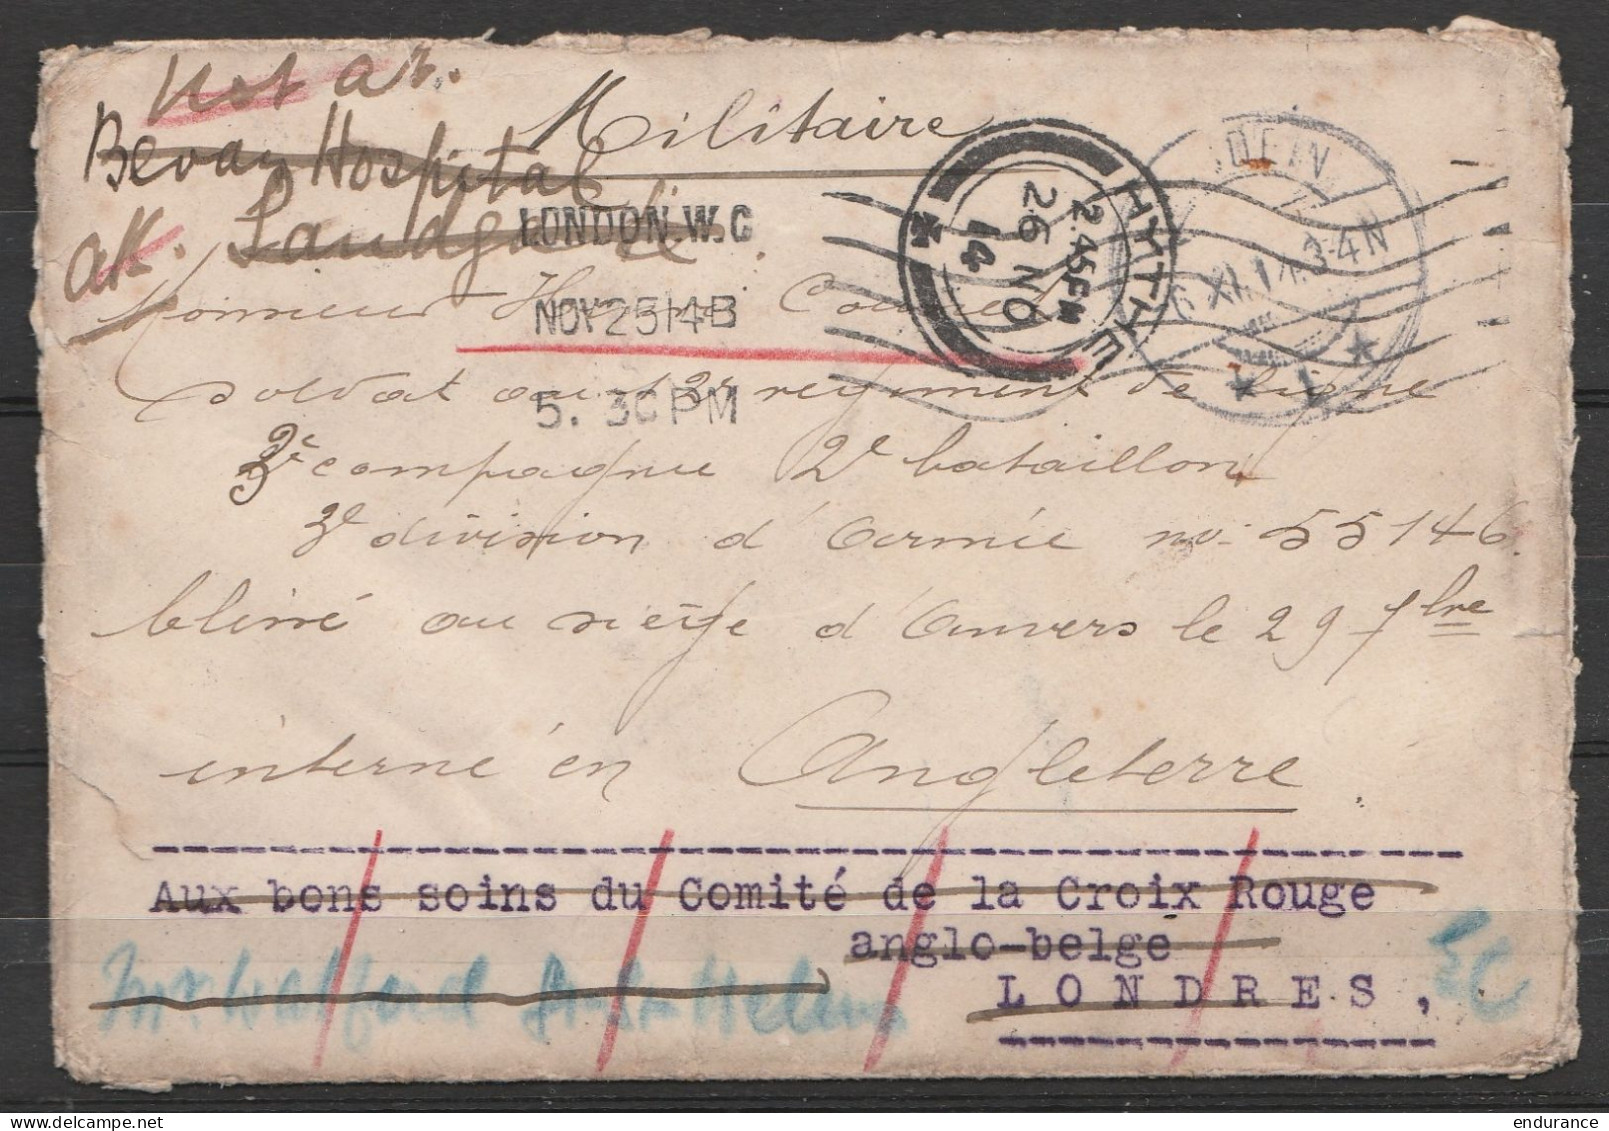 Not at.
Bevan Hospital
at. Sandgate
Militaire
LONDON.W.C
NOV 25 14 B
5. 30 PM
HYTHE
2.45 PM
26 NO
14
XI.14.3-4N
Monsieur Henri
soldat au régiment de ligne
3e compagnie 2e bataillon
3e division d'Armée no. 55146.
blessé au siège d'Anvers le 29 7bre
interné en Angleterre.
Aux bons soins du Comité de la Croix Rouge
anglo-belge
LONDRES,
EC
endurance